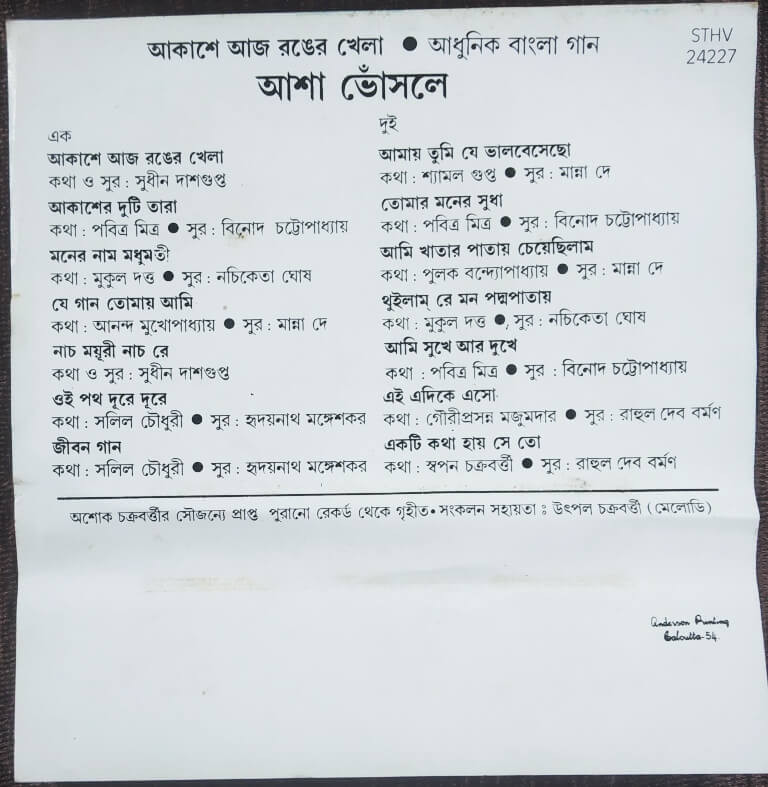 আকাশে আজ রঙের খেলা ● আধুনিক বাংলা গান
STHV
24227
আশা ভোঁসলে
এক
আকাশে আজ রঙের খেলা
কথা ও সুর : সুধীন দাশগুপ্ত
আকাশের দুটি তারা
কথা : পবিত্র মিত্র ● সুর : বিনোদ চট্টোপাধ্যায়
মনের নাম মধুমতী
কথা : মুকুল দত্ত ● সুর : নচিকেতা ঘোষ
যে গান তোমায় আমি
কথা : আনন্দ মুখোপাধ্যায় ● সুর : মান্না দে
নাচ ময়ূরী নাচ রে
কথা ও সুর : সুধীন দাশগুপ্ত
ওই পথ দূরে দূরে
কথা : সলিল চৌধুরী ● সুর : হৃদয়নাথ মঙ্গেশকর
জীবন গান
কথা : সলিল চৌধুরী ● সুর : হৃদয়নাথ মঙ্গেশকর
দুই
আমায় তুমি যে ভালবেসেছো
কথা : শ্যামল গুপ্ত ● সুর : মান্না দে
তোমার মনের সুধা
কথা : পবিত্র মিত্র ● সুর : বিনোদ চট্টোপাধ্যায়
আমি খাতার পাতায় চেয়েছিলাম
কথা : পুলক বন্দ্যোপাধ্যায় ● সুর : মান্না দে
থুইলাম্ রে মন পদ্মপাতায়
কথা : মুকুল দত্ত ●, সুর : নচিকেতা ঘোষ
আমি সুখে আর দুখে
কথা : পবিত্র মিত্র ● সুর : বিনোদ চট্টোপাধ্যায়
এই এদিকে এসো
কথা : গৌরীপ্রসন্ন মজুমদার ● সুর : রাহুল দেব বর্মণ
একটি কথা হায় সে তো
কথা : স্বপন চক্রবর্ত্তী ● সুর : রাহুল দেব বর্মণ
অশোক চক্রবর্ত্তীর সৌজন্যে প্রাপ্ত পুরানো রেকর্ড থেকে গৃহীত• সংকলন সহায়তা : উৎপল চক্রবর্ত্তী (মেলোডি)
Anderson Printing
Calcutta-54.